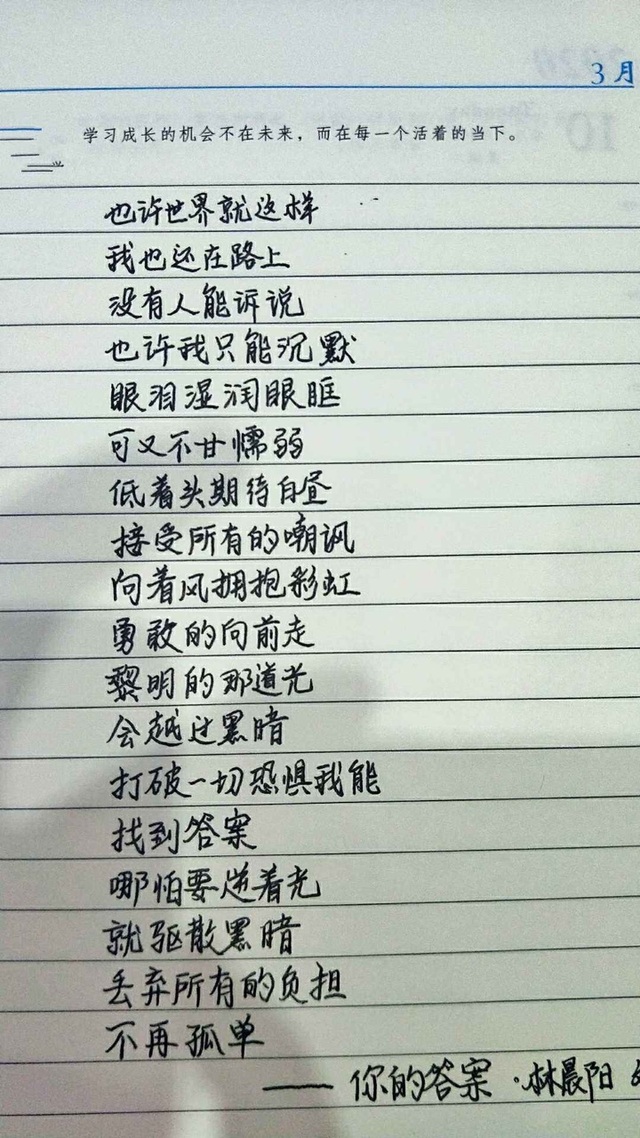 3月
学习成长的机会不在未来，而在每一个活着的当下。
也许世界就这样
我也还在路上
没有人能诉说
也许我只能沉默
眼泪湿润眼眶
可又不甘懦弱
低着头期待白昼
接受所有的嘲讽
向着风拥抱彩虹
勇敢的向前走
黎明的那道光
会越过黑暗
打破一切恐惧我能
找到答案
哪怕要逆着光
就驱散黑暗
丢弃所有的负担
不再孤单
——你的答案·林晨阳